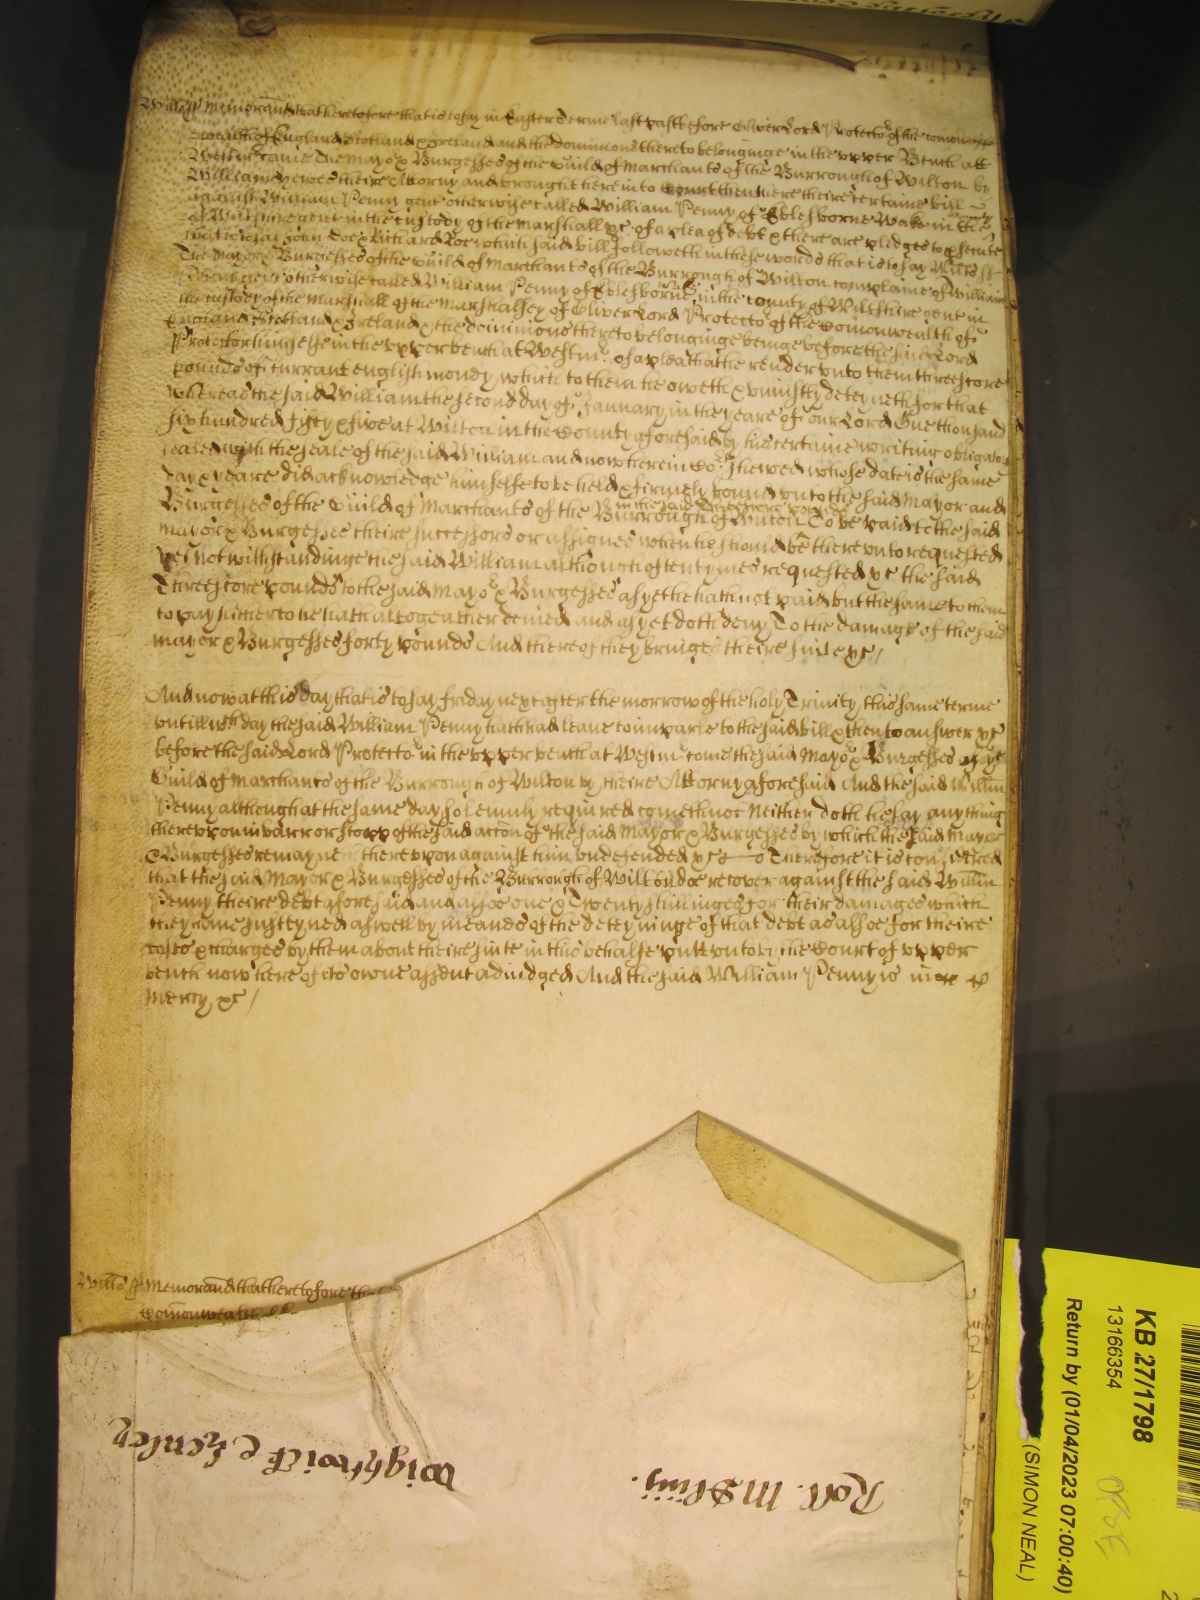 Wiltes ss Memorand that heretofore that is to say in Easter Terme last past before Oliver Lord Protector of the Comon
wealth of England Scotland & Ireland and the dominions thereto belonginge in the upper Bench att
Westmr came the Mayor & Burgesses of the Guild of Marchants of the Burrough of Wilton by
William their Attorny and brought here into Court then there theire certaine bill
against William Penny gent otherwise called William Penny of Eblesborne Wake in the County
of Wiltshire gent in the custody of the Marshall &c of a plea of debt & there are pledges to prosecute
to wit John Doe & Richard Roe which said bill followeth in these words that is to say Wiltes ss
The Mayor & Burgesses of the Guild of Marchants of the Burrough of Wilton complaine of William
Penny gent otherwise called William Penny of Eblesborne in the County of Wiltshire gent in
the custody of the Marshall of the Marshalsey of Oliver Lord Protector of the Comonwealth of
England Scotland & Ireland & the dominions thereto belonginge beinge before the said Lord
Protector himselfe in the upper bench at Westmr of a plea that he render unto them threescore
pounds of currant english money which to them he oweth & uniustly deteyneth for that
whereas the said William the second day of January in the yeare of our Lord One thousand
six hundred fifty & five at Wilton in the County aforesaid by his certaine writing obligatory
sealed with the seale of the said William and now here in Court shewed whose date is the same
day & yeare did acknowledge himselfe to be held & firmely bound unto the said Mayor and
Burgesses of the Guild of Marchants of the Burrough of Wilton in the said threescore pounds To be paid to the said
Mayor & Burgesses theire successors or assignes when he should be thereunto requested
yet notwithstandinge the said William although oftentymes requested &c the said
Threescore pounds to the said Mayor & Burgesses as yet he hath not paid but the same to them
to pay hitherto he hath altogeather denied and as yet doth deny To the damage of the said
Mayor & Burgesses forty pounds And thereof they bringe theire suite &c /
And now at this day that is to say friday next after the morrow of the holy Trinity this same terme
untill which day the said William Penny hath had leave to imparle to the said bill & then to answer &c
before the said Lord Protector in the upper bench at Westmr come the said Mayor & Burgesses of ye
Guild of Marchants of the Burrough of Wilton by theire Attorny aforesaid And the said Willm
Penny although at the same day solemnly required cometh not Neither doth he say any thing
thereupon in barr or stopp of the said accon of the said Mayor & Burgesses by which the said Mayor
& Burgesses remayne thereupon against him undefended &c Therefore it is considered
that the said Mayor & Burgesses of the Burrough of Wilton doe recover against the said Willm
Penny theire debt aforesaid and alsoe one & Twenty shillinges for their damages which
they have susteyned aswell by meanes of the deteyninge of that debt as alsoe for theire
costs & charges by them about theire suite in this behalfe putt unto by the Court of upper
bench now here of its owne assent adiudged And the said William Penny is in
Mercy &c /
Wiltes ss Memorand that heretofore th
Comonwealth
Wightwick & Henley
Roll
KB 27/1798
13166354
Return by (01/04/2023 07:00:40)
(SIMON NEAL)